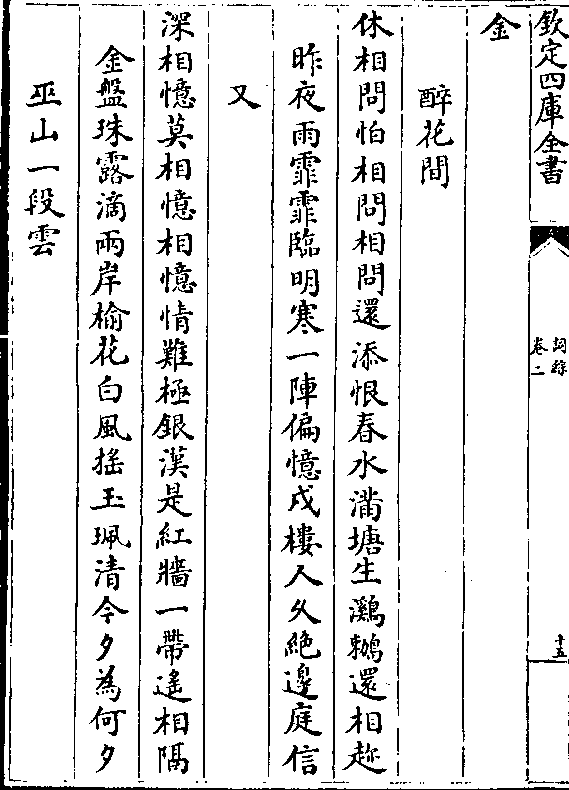 欽定四庫全書
詞綜
卷二
十五
金
醉花間
休相問怕相問相問還添恨春水滿塘生鸂鶒還相趂
昨夜雨霏霏臨明寒一陣偏憶戍樓人久絶邊庭信
又
深相憶莫相憶相憶情難極銀漢是紅牆一帶遙相隔
金盤珠露滴兩岸榆花白風揺玉珮清今夕為何夕
巫山一段雲